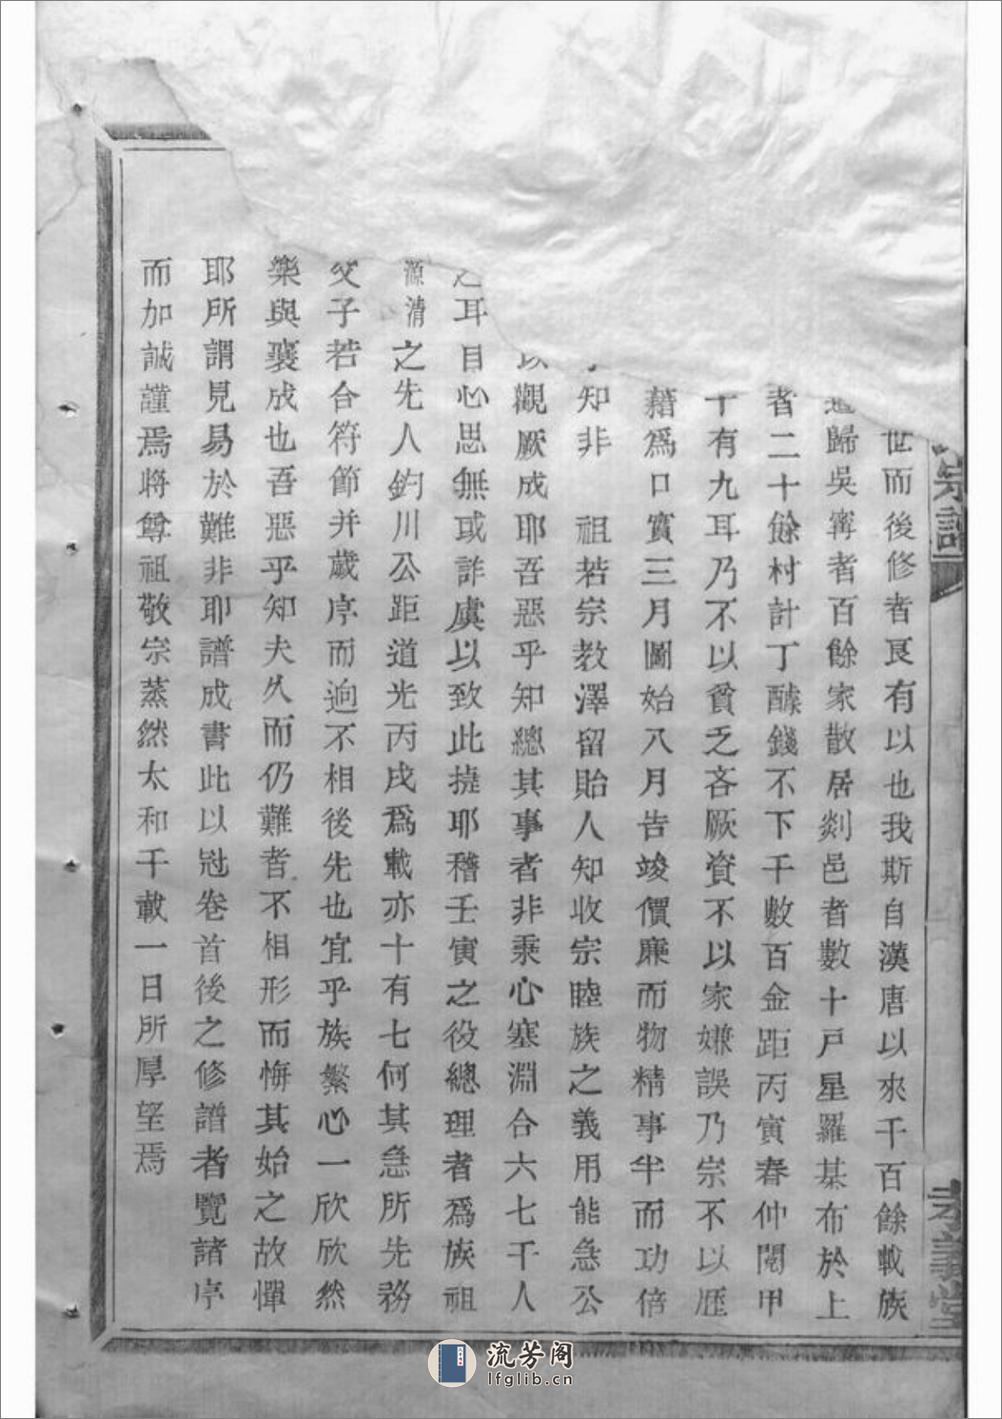 宗譜
孝義堂
世而後修者良有以也我斯自漢唐以來千百餘載族
歸吳寗者百餘家散居剡邑者數十戸星羅棊布於上
者二十餘村計丁醵錢不下千數百金距丙寅春仲閱甲
十有九耳乃不以貧乏吝厥資不以家嫌誤乃宗不以歴
藉爲口實三月圖始八月告竣價廉而物精事半而功倍
知非 祖若宗敎澤留貽人知收宗睦族之義用能急公
以觀厥成耶吾惡乎知總其事者非秉心塞淵合六七千人
之耳目心思無或詐虞以致此撓耶稽壬寅之役總理者爲族祖
源清之先人鈞川公距道光丙戌爲載亦十有七何其急所先務
父子若合符節并歲序而逈不相後先也宜乎族繁心一欣欣然
樂與襄成也吾惡乎知夫久而仍難者不相形而悔其始之故憚
耶所謂見易於難非耶譜成書此以冠卷首後之修譜者覽諸序
而加誠謹焉將尊祖敬宗蒸然太和千載一日所厚望焉
流芳阁
lfglib.cn